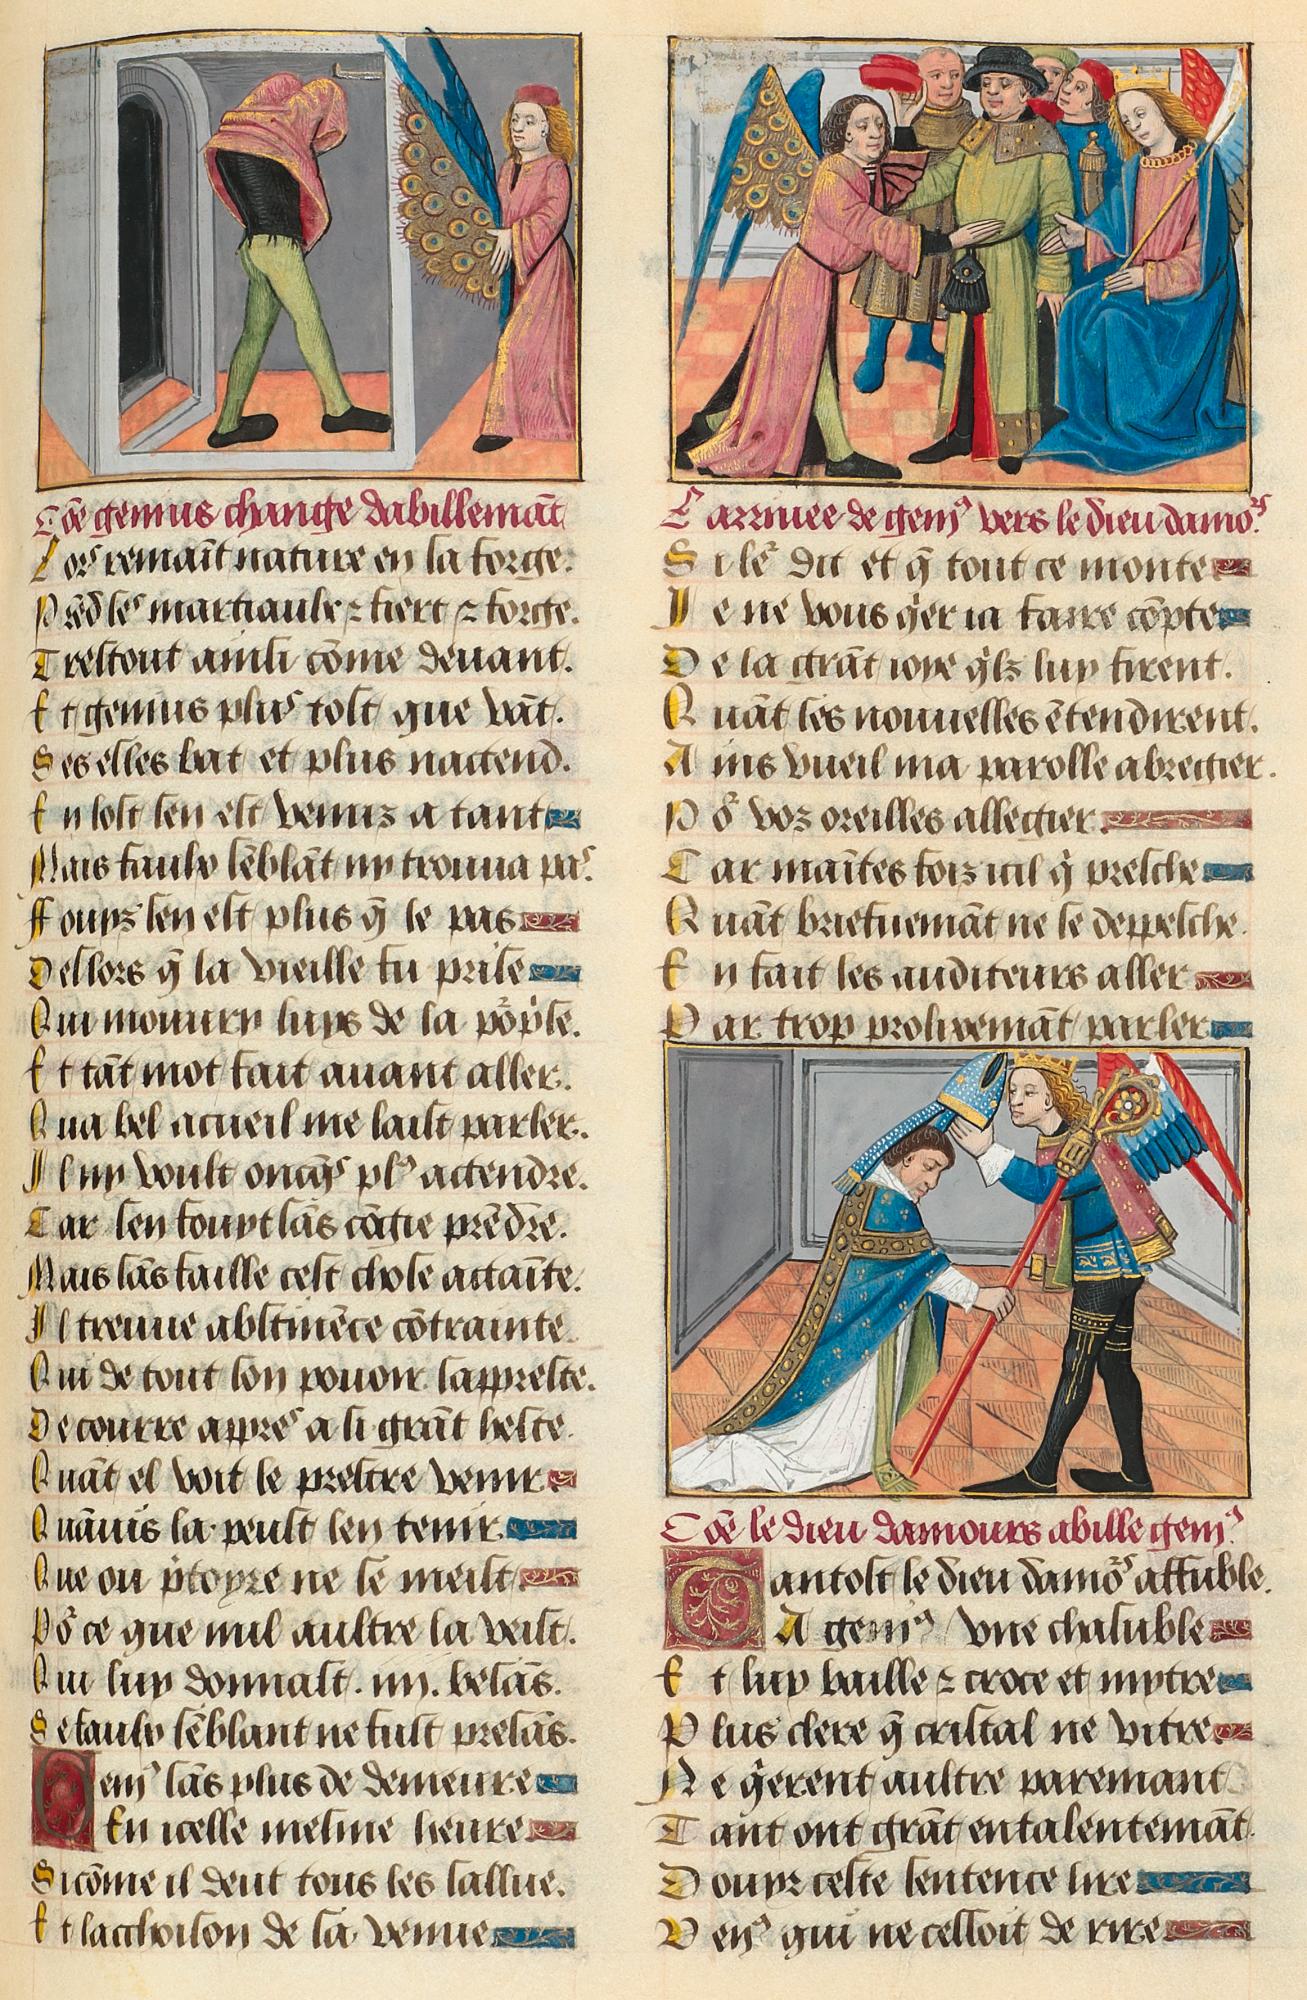 Cõe genius change dabillemãt
Lors remaĩt nature en la forge.
Prẽd ses martiaulx ⁊ fiert ⁊ forge.
Trestout ainsi cõme deuant.
Et genius plus tost que vãt.
Ses elles bat et plus nactend.
En lost sen est venuz a tant
Mais faulx sẽblãt ny trouua pas
Fouyz sen est plus q̃ le pas
Deslors q̃ la vieille fu prise
Qui mouury luys de la põpise.
Et tãt mot fait auant aller.
Qua bel acueil me laist parler.
Il ny voult oncq̃s pls actendre.
Car sen fouyt sãs cõgie prẽdre.
Mais sãs faille cest chose actaĩte.
Il treuue abstinẽce cõtrainte
Qui de tout son pouoir sappreste.
De courre apres a si grãt heste
Quãt el voit le prestre venir
Quãuis la peust len tenir
Que ou ptoyre ne se meist
Por ce que nul aultre la veist.
Qui luy donnast .iiij. besãs.
Se faulx sẽblant ne fust presãs.
Genius sãs plus de demeure
En icelle mesme heure
Si cõme il deut tous les sallue.
Et lacchoison de sa venue
Larriuee de genius vers le dieu damors
Si ler dit et q̃ tout ce monte
Je ne vous q̃er ia faire cõpte
De la grãt ioye q̃lz luy firent.
Quãt les nouuelles ẽtendirent.
Ains vueil ma parolle abregier.
Por voz oreilles allegier
Car maĩtes foiz icil q̃ presche
Quãt briefuemãt ne se deppesche.
En fait les auditeurs aller
Par trop prolixemãt parler
Cõe le dieu damours abille genius
Tantost le dieu damors affuble.
A genius vne chasuble
Et luy baille ⁊ croce et mytre
Plus clere q̃ cristal ne vitre
Ne q̃erent aultre paremant
Tant ont grãt entalentemãt
Douyr ceste sentence lire
Venus qui ne cessoit de rire